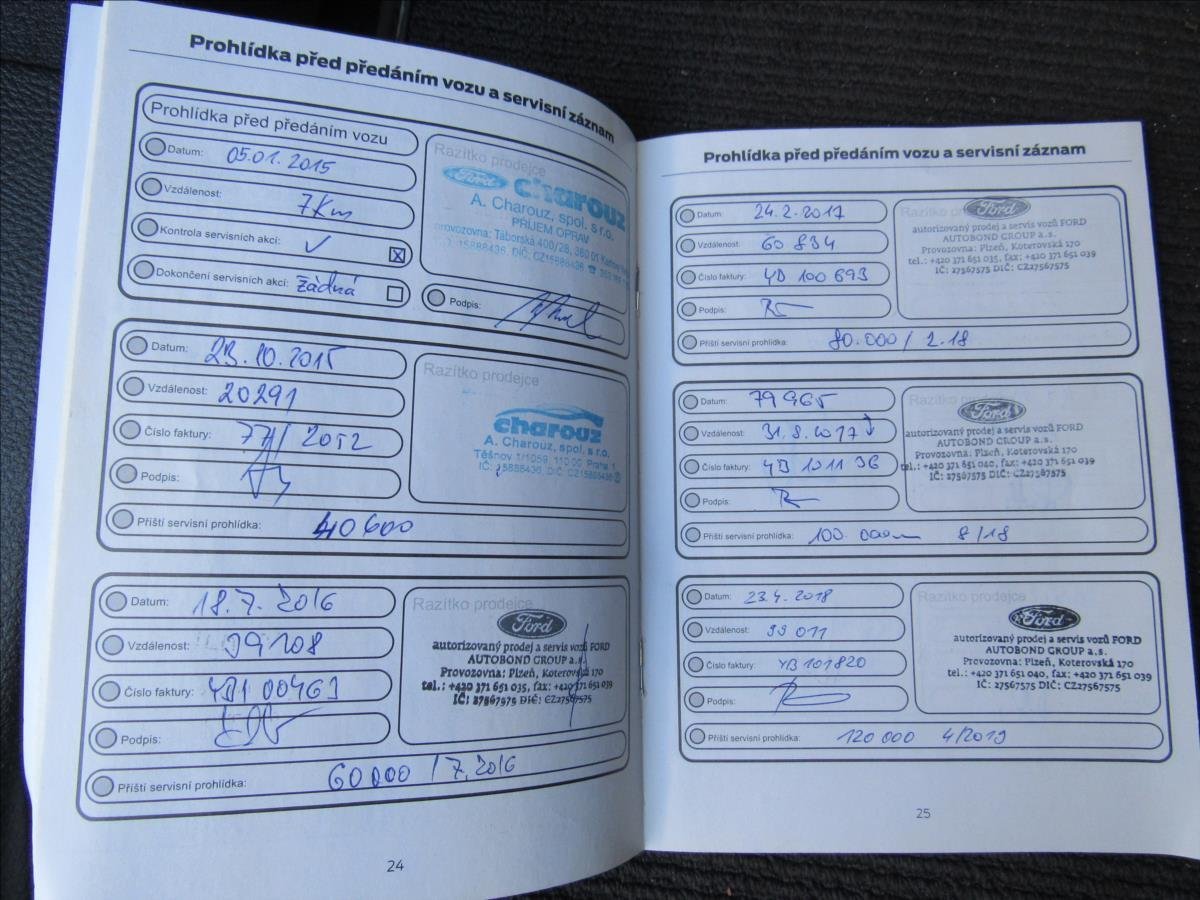 Prohlídka před předáním vozu a servisní záznam
Prohlídka před předáním vozu
Datum: 05.01.2015
Vzdálenost: 7Km
Kontrola servisních akcí: ✓
Dokončení servisních akcí: žádná
Razítko prodejce
Ford charouz
A. Charouz, spol. s r.o.
PŘÍJEM OPRAV
provozovna: Táborská 400/26, 360 01 Karlovy
15888436, DIČ: CZ15888436
Podpis:
Datum: 23.10.2015
Vzdálenost: 20291
Číslo faktury: 2052
Podpis:
Příští servisní prohlídka: 40600
Razítko prodejce
charouz
A. Charouz, spol. s r.o.
Těšnov 1/1059, 110 00 Praha 1
IČ: 15888436, DIČ: CZ15888436
Datum: 18.7.2016
Vzdálenost: 39108
Číslo faktury:
Podpis:
Příští servisní prohlídka: 60000 / 7.2016
Razítko prodejce
Ford
autorizovaný prodej a servis vozů FORD
AUTOBOND GROUP a.s.
Provozovna: Plzeň, Koterovská 170
tel.: +420 371 651 035, fax: +420 371 651 039
IČ: 27567575 DIČ: CZ27567575
24
Prohlídka před předáním vozu a servisní záznam
Datum: 24.2.2017
Vzdálenost: 60 834
Číslo faktury: 4B 100 693
Podpis:
Příští servisní prohlídka: 80.000 / 2.18
Razítko prodejce
Ford
autorizovaný prodej a servis vozů FORD
AUTOBOND GROUP a.s.
Provozovna: Plzeň, Koterovská 170
tel.: +420 371 651 035, fax: +420 371 651 039
IČ: 27567575 DIČ: CZ27567575
Datum: 79 965
Vzdálenost: 31.8.2017
Číslo faktury: 4B 1011 36
Podpis:
Příští servisní prohlídka: 100.000 8/18
Ford
autorizovaný prodej a servis vozů FORD
AUTOBOND GROUP a.s.
Provozovna: Plzeň, Koterovská 170
tel.: +420 371 651 040, fax: +420 371 651 039
IČ: 27567575 DIČ: CZ27567575
Datum: 23.4.2018
Vzdálenost: 99 011
Číslo faktury: 4B 101820
Podpis:
Příští servisní prohlídka: 120 000 4/2019
Razítko prodejce
Ford
autorizovaný prodej a servis vozů FORD
AUTOBOND GROUP a.s.
Provozovna: Plzeň, Koterovská 170
tel.: +420 371 651 040, fax: +420 371 651 039
IČ: 27567575 DIČ: CZ27567575
25